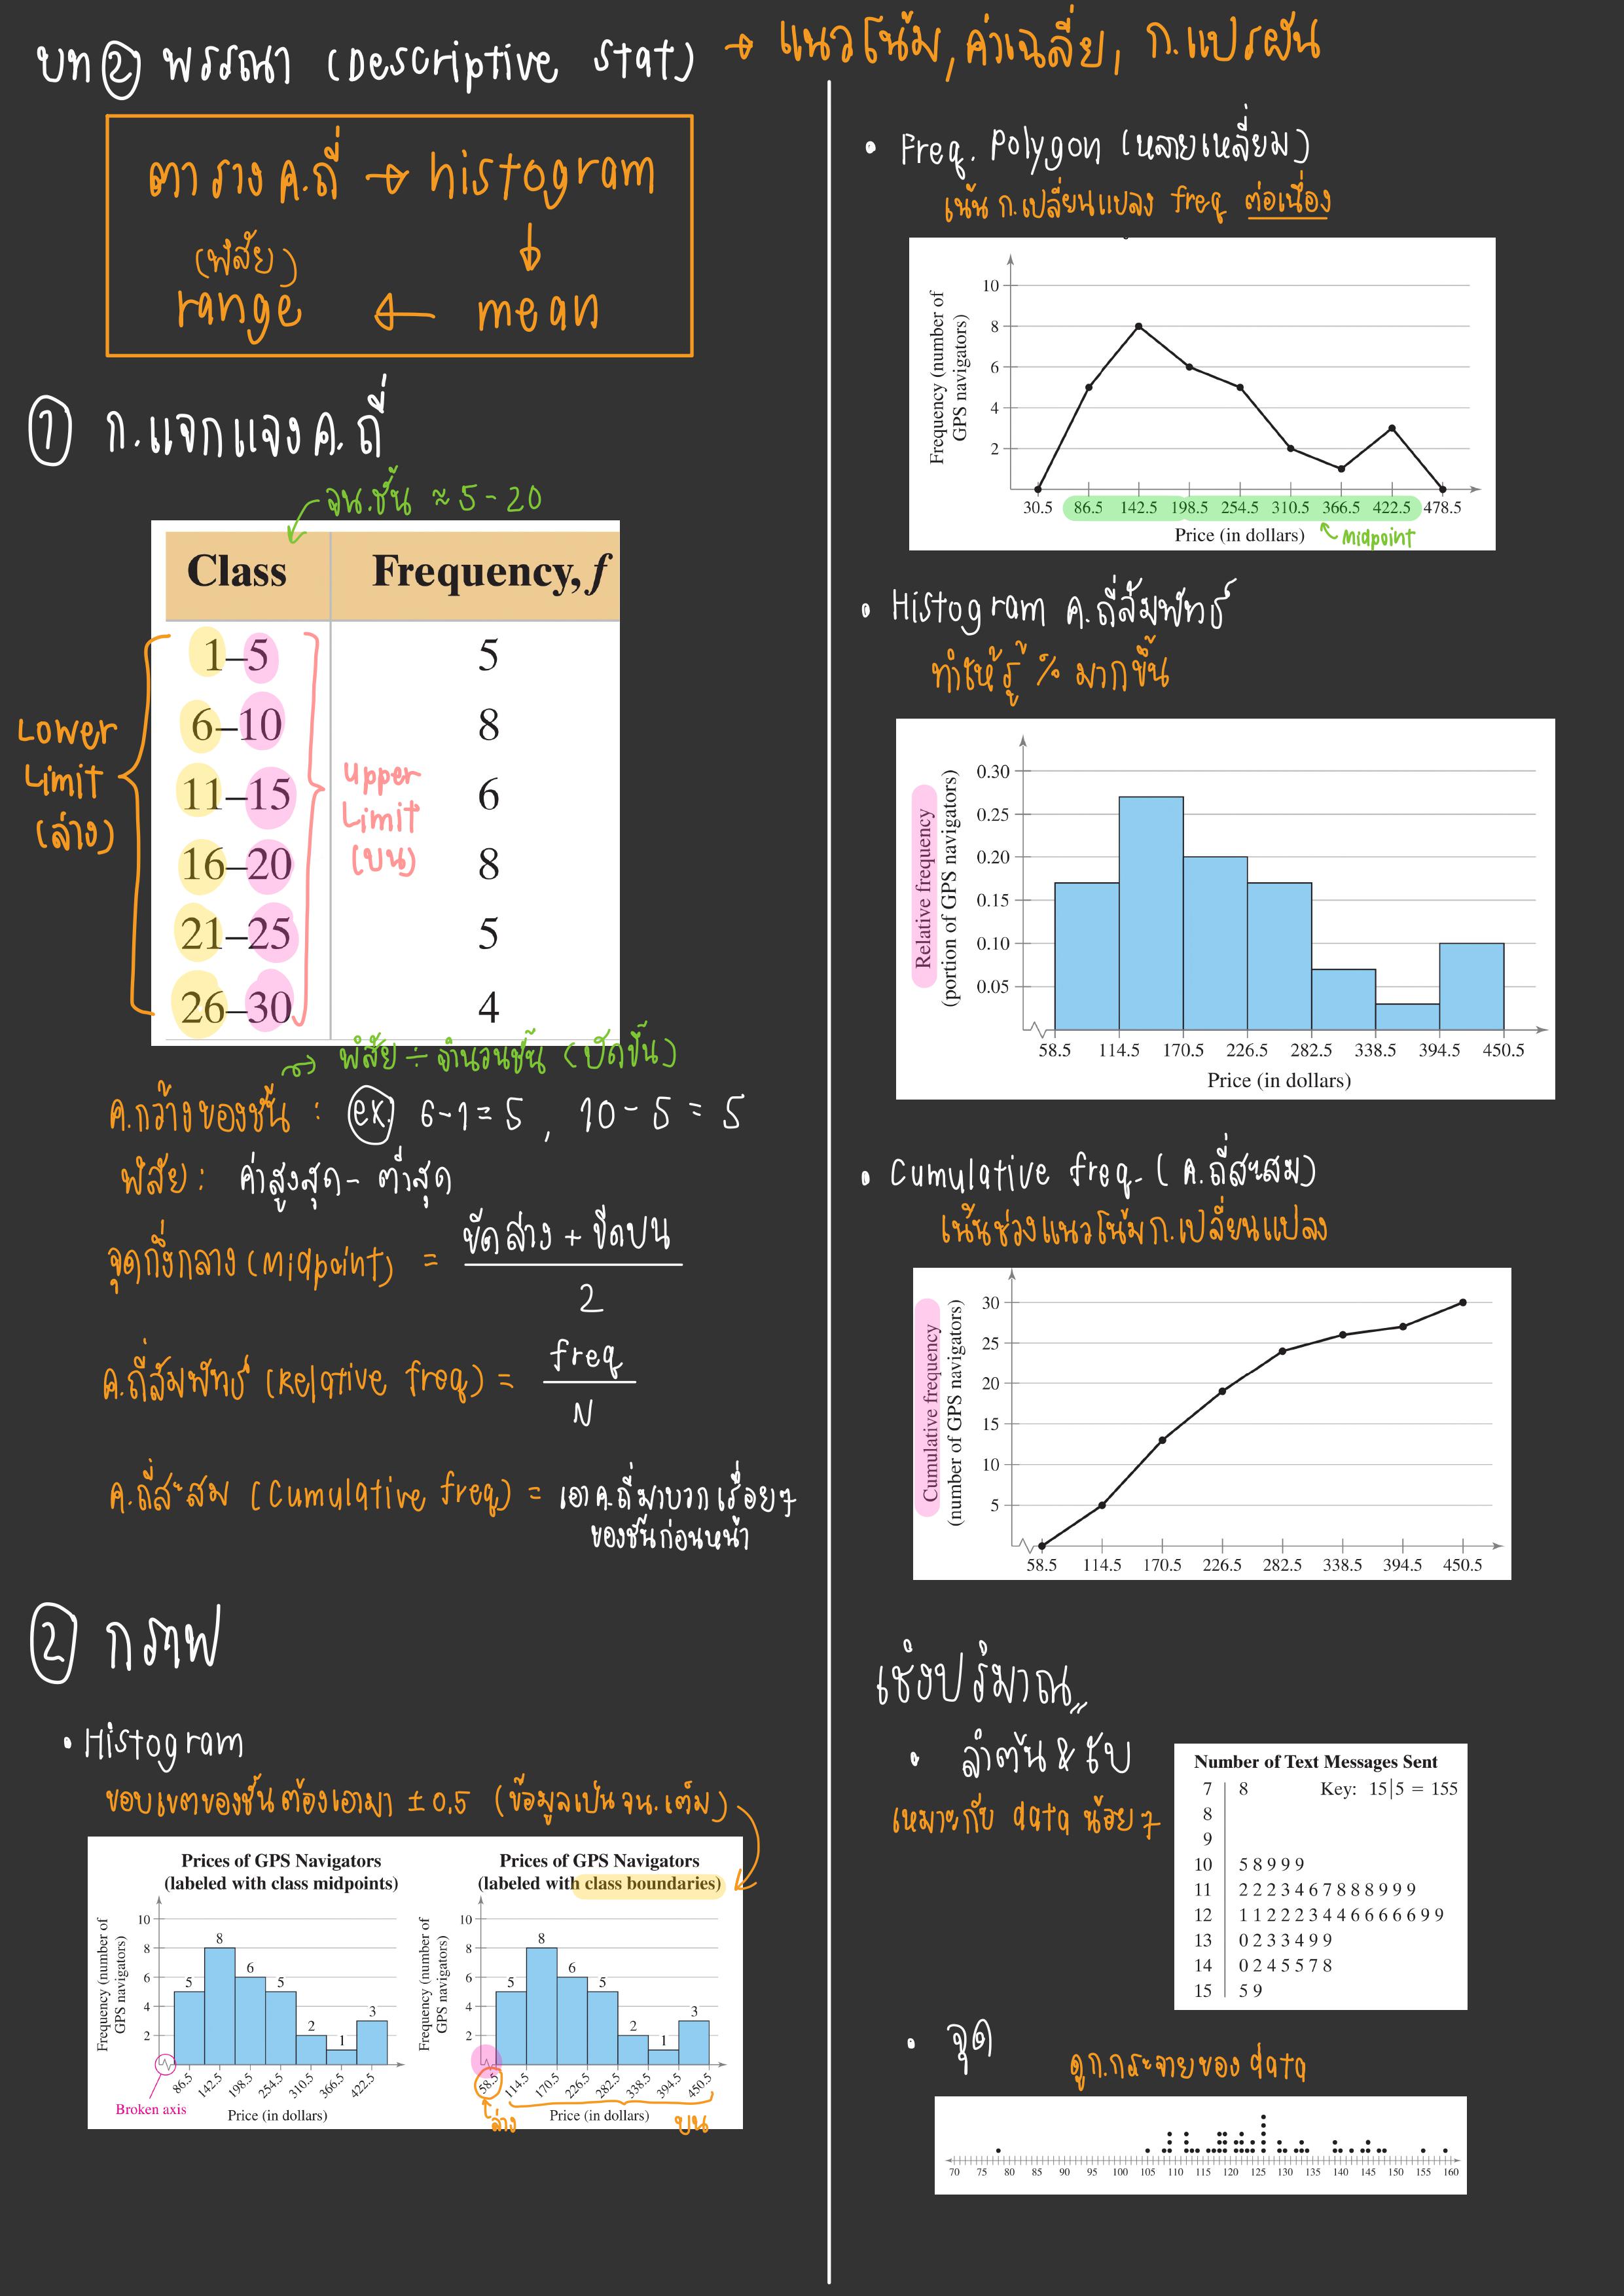 บท ② พรรณา (Descriptive stat) → แนวโน้ม, ค่าเฉลี่ย, ก.แปรผัน
ตาราง ค.ถี่ → histogram
↓
(พิสัย)
range ← mean
① ก.แจกแจง ค.ถี่
จน.ชั้น ≈ 5 - 20
Class Frequency, f
1–5 5
6–10 8
11–15 6
16–20 8
21–25 5
26–30 4
Lower
Limit
(ล่าง)
upper
Limit
(บน)
→ พิสัย ÷ จำนวนชั้น (ปัดขึ้น)
ค.กว้างของชั้น : ex. 6-1 = 5 , 10 - 5 = 5
พิสัย : ค่าสูงสุด - ต่ำสุด
จุดกึ่งกลาง (Midpoint) = ขีดล่าง + ขีดบน
2
ค.ถี่สัมพัทธ์ (Relative freq) = freq
N
ค.ถี่สะสม (Cumulative freq) = เอา ค.ถี่ มาบวกเรื่อยๆ
ของชั้นก่อนหน้า
② กราฟ
• Histogram
ขอบเขตของชั้นต้องเอามา ± 0.5 (ข้อมูลเป็น จน.เต็ม)
Prices of GPS Navigators
(labeled with class midpoints)
Frequency (number of
GPS navigators)
10
8
6
4
2
5 8 6 5 2 1 3
86.5 142.5 198.5 254.5 310.5 366.5 422.5
Broken axis
Price (in dollars)
Prices of GPS Navigators
(labeled with class boundaries)
Frequency (number of
GPS navigators)
10
8
6
4
2
5 8 6 5 2 1 3
58.5 114.5 170.5 226.5 282.5 338.5 394.5 450.5
Price (in dollars)
ล่าง บน
• Freq. Polygon (หลายเหลี่ยม)
เน้น ก.เปลี่ยนแปลง freq ต่อเนื่อง
Frequency (number of
GPS navigators)
10
8
6
4
2
30.5 86.5 142.5 198.5 254.5 310.5 366.5 422.5 478.5
Price (in dollars)
Midpoint
• Histogram ค.ถี่สัมพัทธ์
ทำให้รู้ % มากขึ้น
Relative frequency
(portion of GPS navigators)
0.30
0.25
0.20
0.15
0.10
0.05
58.5 114.5 170.5 226.5 282.5 338.5 394.5 450.5
Price (in dollars)
• Cumulative freq. (ค.ถี่สะสม)
เน้นช่วงแนวโน้ม ก.เปลี่ยนแปลง
Cumulative frequency
(number of GPS navigators)
30
25
20
15
10
5
58.5 114.5 170.5 226.5 282.5 338.5 394.5 450.5
เชิงปริมาณ
• ลำต้น & ใบ
เหมาะกับ data น้อยๆ
Number of Text Messages Sent
7 | 8 Key: 15|5 = 155
8 |
9 |
10 | 5 8 9 9 9
11 | 2 2 2 3 4 6 7 8 8 8 9 9 9
12 | 1 1 2 2 2 3 4 4 6 6 6 6 6 9 9
13 | 0 2 3 3 4 9 9
14 | 0 2 4 5 5 7 8
15 | 5 9
• จุด
ดู ก.กระจายของ data
70 75 80 85 90 95 100 105 110 115 120 125 130 135 140 145 150 155 160